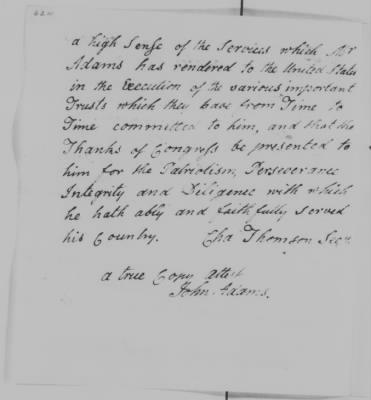 a high Sense of the Services which Mr
Adams has rendered to the United States
in the Execution of the various important
Trusts which they have from Time to
Time committed to him, and that the
Thanks of Congress be presented to
him for the Patriotism, Perseverance
Integrity and Diligence with which
he hath ably and faithfully served
his Country. Cha Thomson Secy.
a true Copy attest
John Adams.